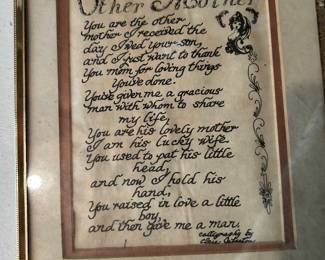 Other Mother
You are the other
mother I received the
day I wed your son,
and I just want to thank
You mom for loving things
You've done.
You've given me a gracious
man with whom to share
my life,
You are his lovely mother
I am his lucky wife.
You used to pat his little
head,
and now I hold his
hand,
You raised in love a little
boy,
and then gave me a man.
calligraphy by